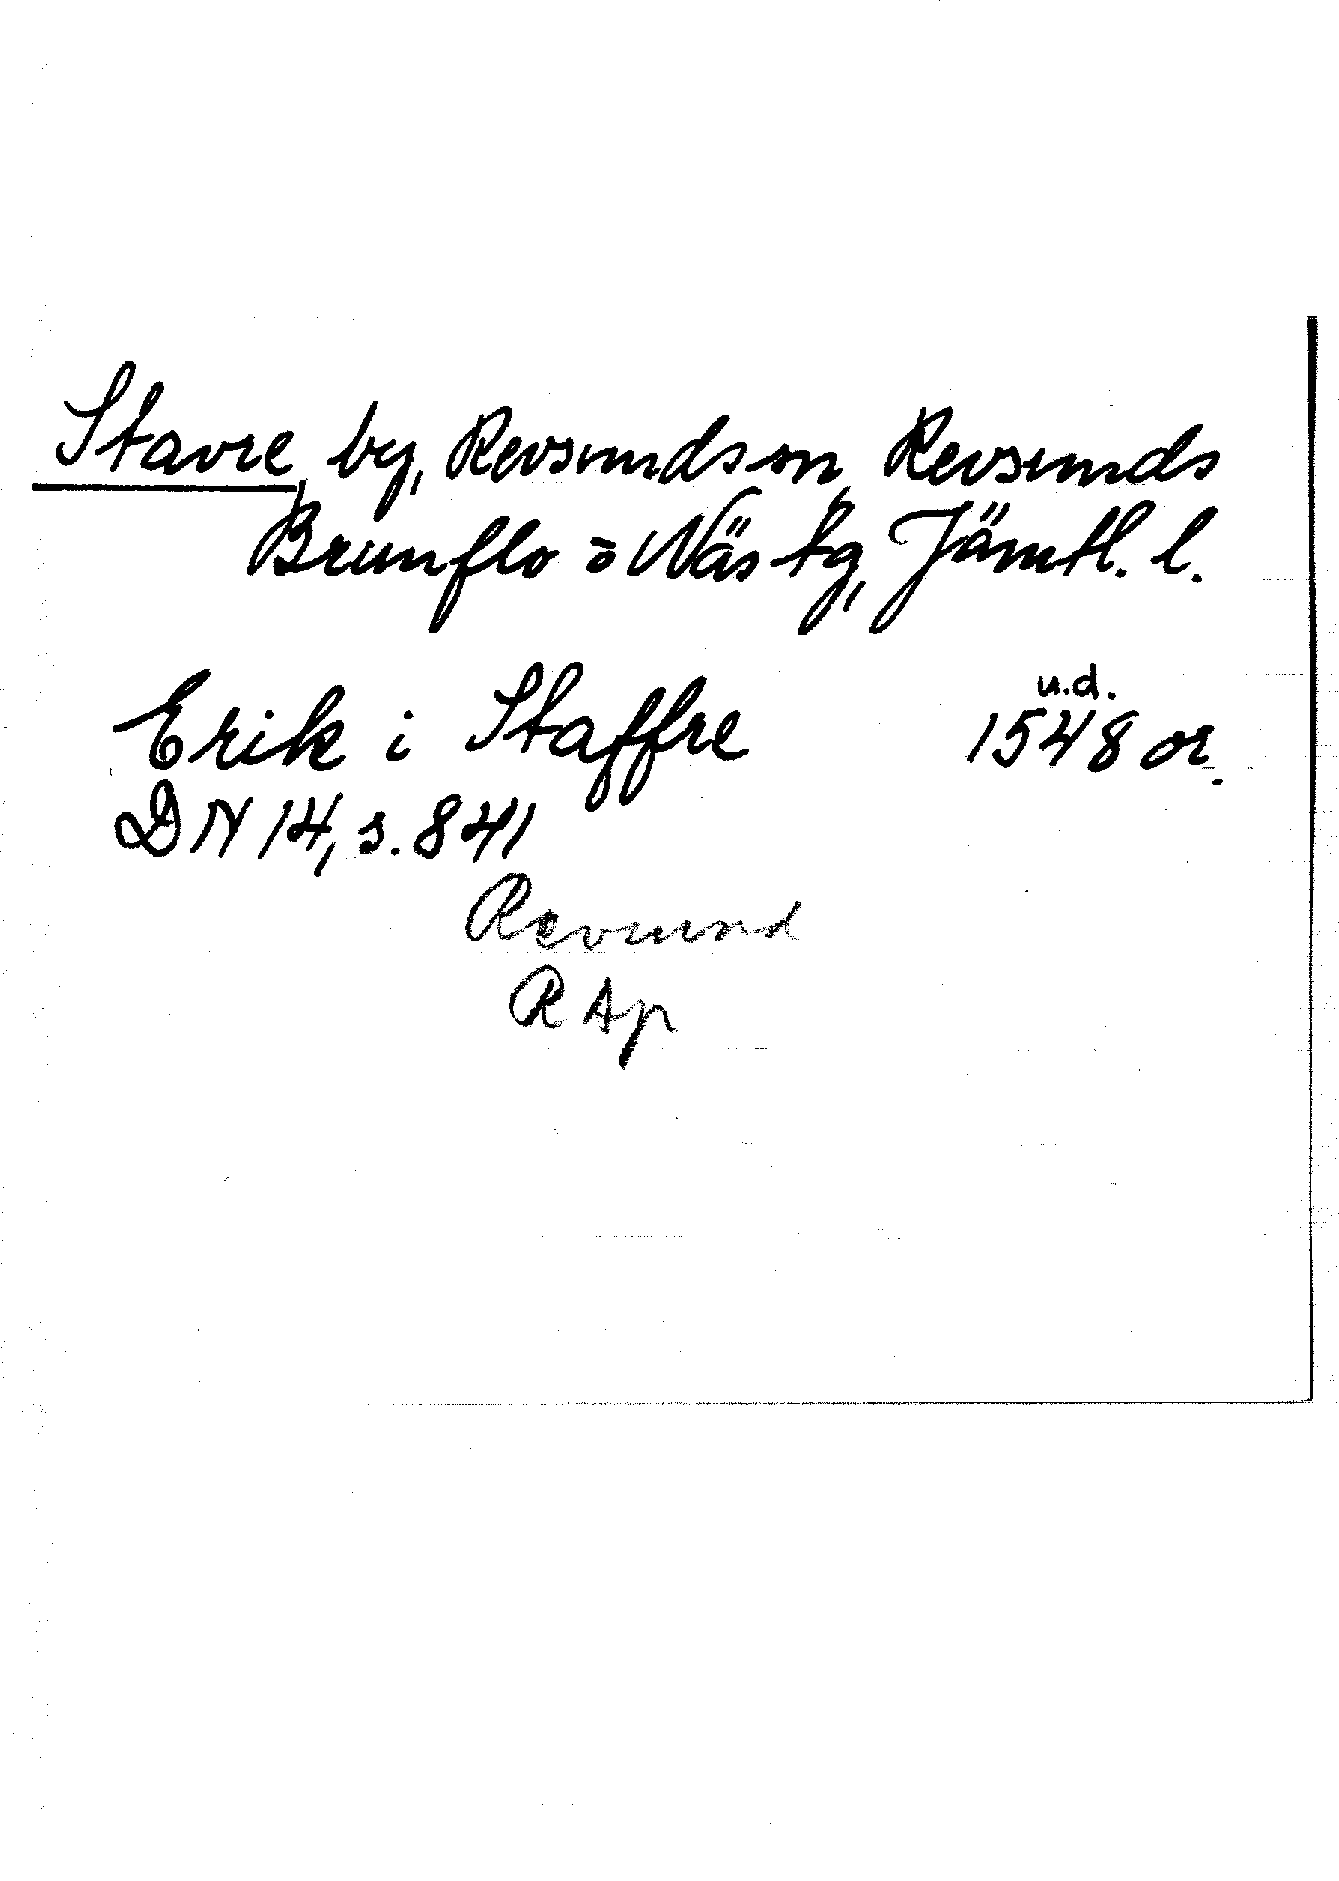 Stavre by, Revsunds sn, Revsunds
Brunflo o Näs tg, Jämtl. l.
u.d.
Erik i Staffre 1548 or.
DN 14, s. 841
Revsund
R Ap